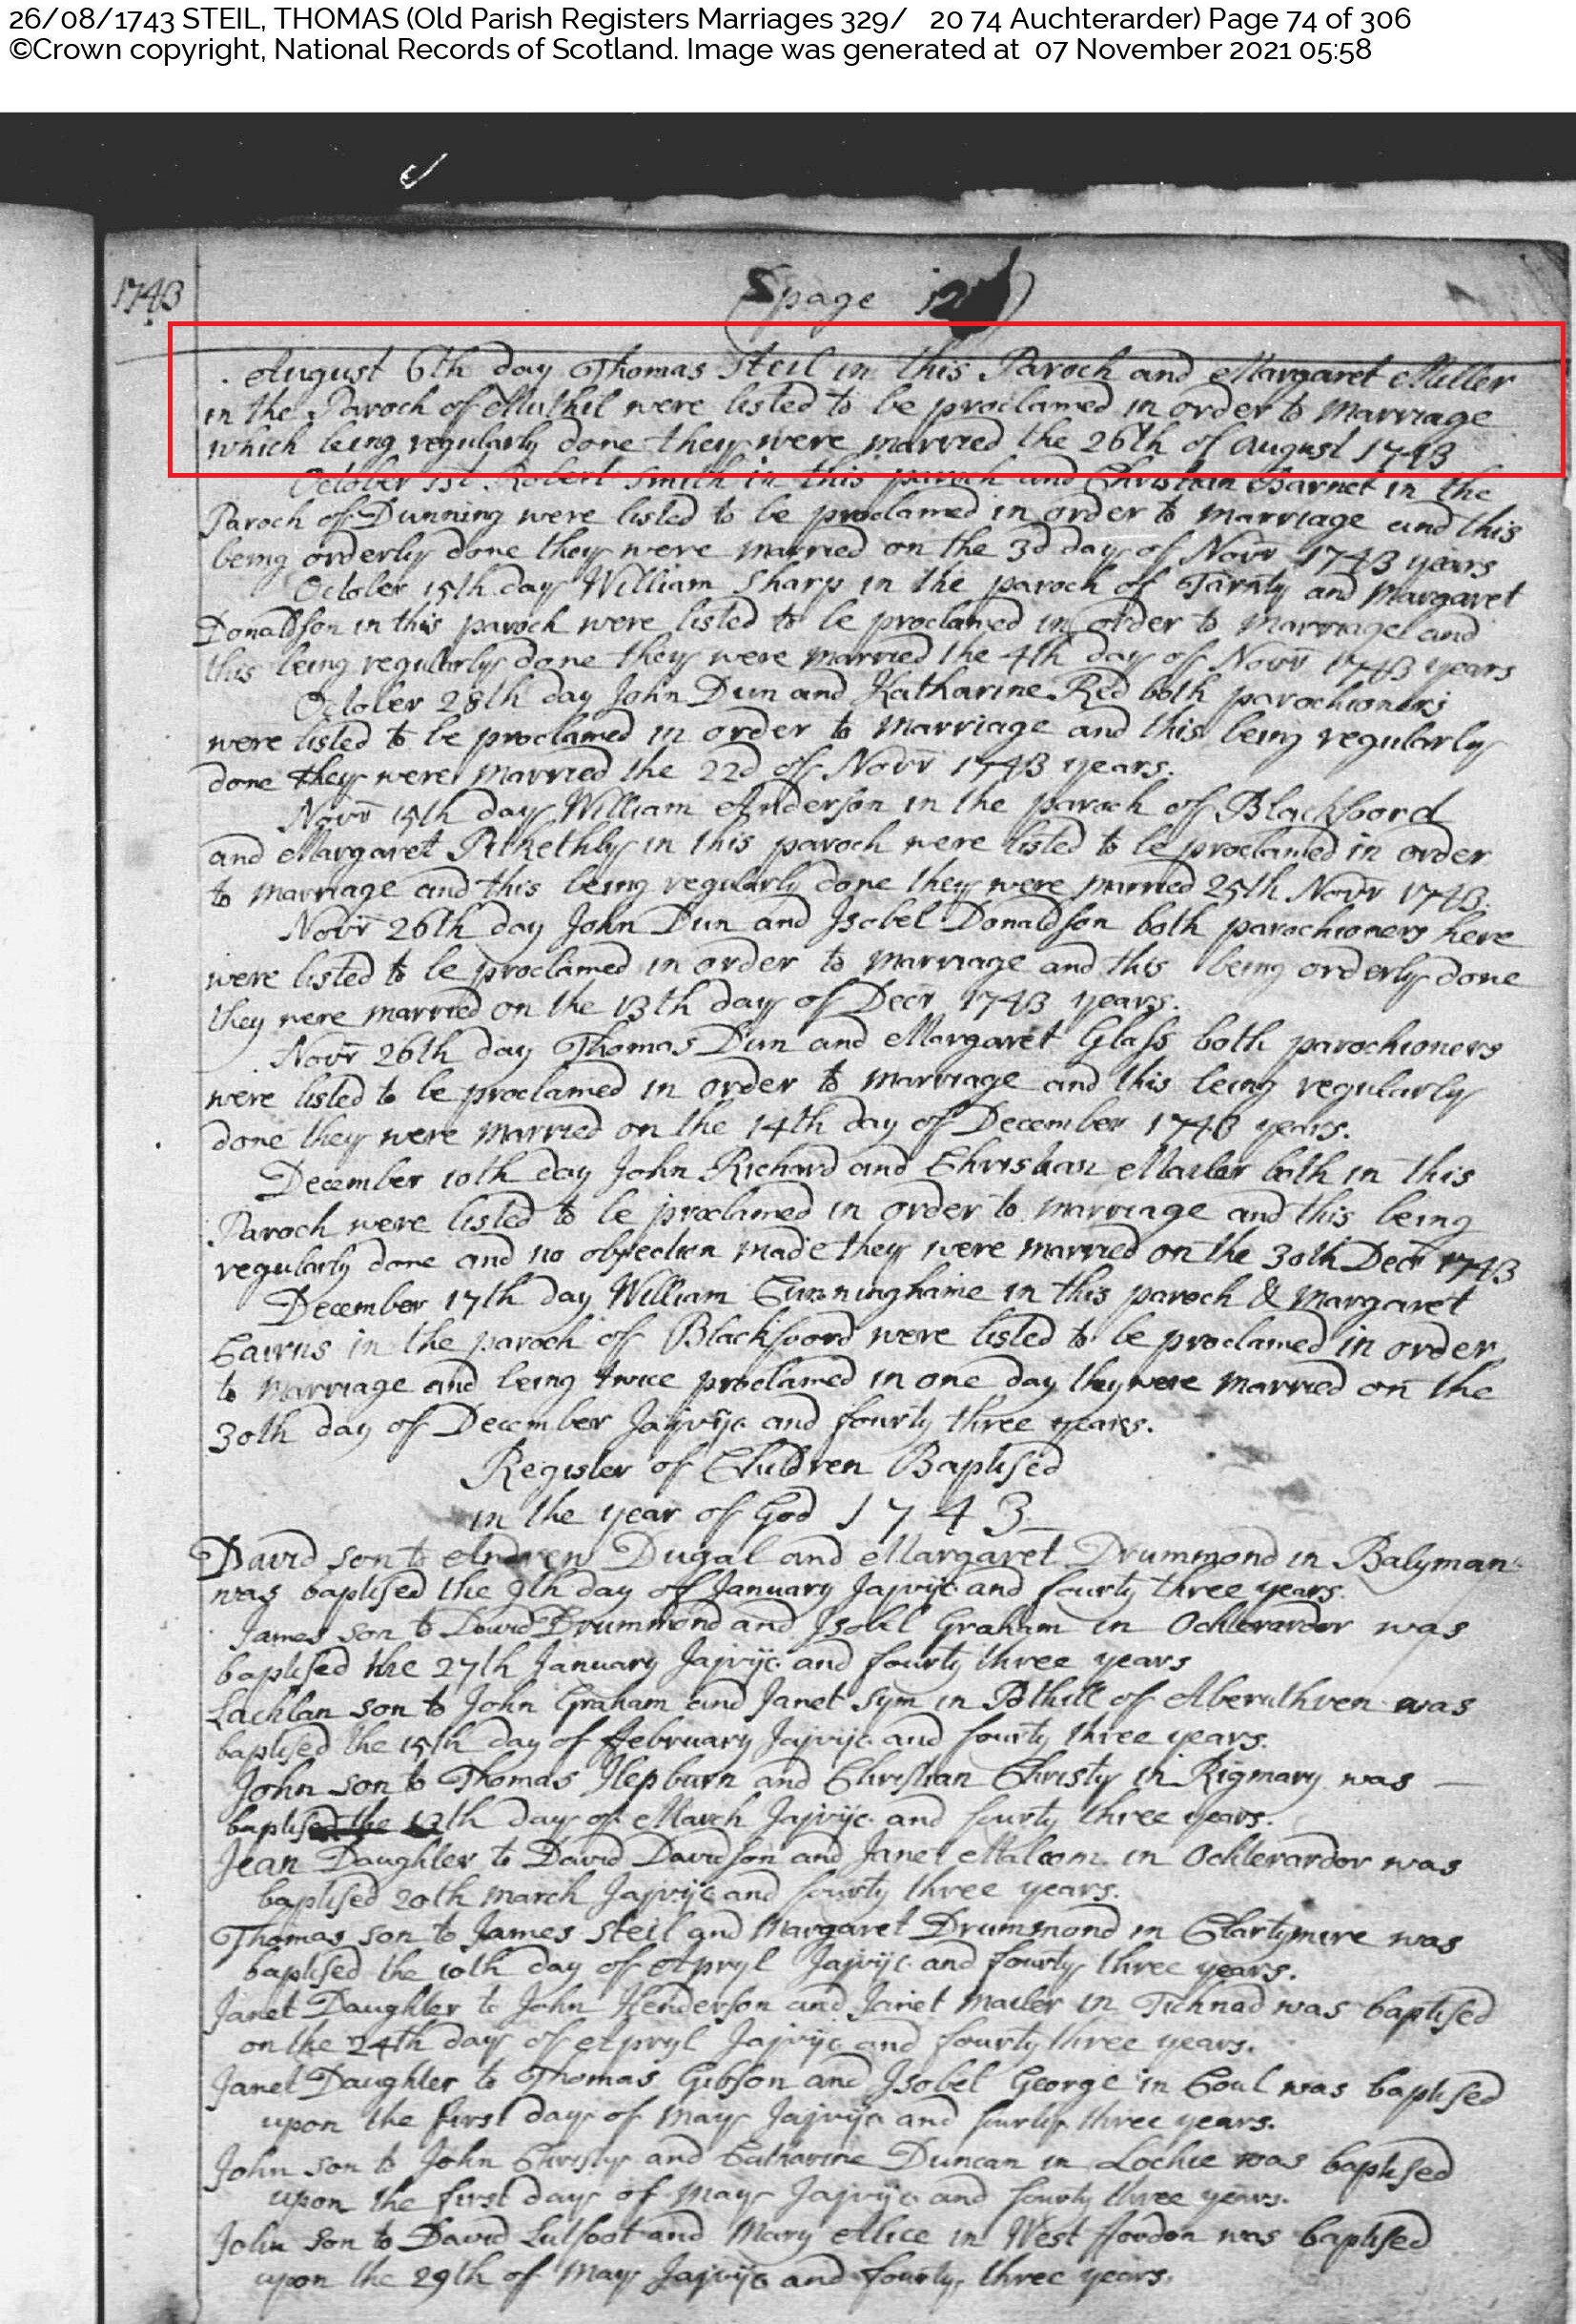 26/08/1743 STEIL, THOMAS (Old Parish Registers Marriages 329/ 20 74 Auchterarder) Page 74 of 306
©Crown copyright, National Records of Scotland. Image was generated at 07 November 2021 05:58
1743
page
August 6th day Thomas Steil in this Paroch and Margaret Miller
in the Paroch of Muthil were listed to be proclamed in order to marriage
which being regularly done they were married the 26th of August 1743
October 1st Robert Smith in this paroch and Christian Barnet in the
Paroch of Dunning were listed to be proclamed in order to marriage and this
being orderly done they were married on the 3d day of Novr 1743 years
October 15th day William Sharp in the paroch of and Margaret
Donaldson in this paroch were listed to be proclamed in order to marriage and
this being regularly done they were married the 4th day of Novr 1743 years
October 28th day John Dun and Katharine Red both parochioners
were listed to be proclamed in order to marriage and this being regularly
done they were married the 22d of Novr 1743 years.
Novr 15th day William Anderson in the paroch of Blackfoord
and Margaret Pitkethly in this paroch were listed to be proclamed in order
to marriage and this being regularly done they were married 25th Novr 1743.
Novr 26th day John Dun and Isobel Donaldson both parochioners here
were listed to be proclamed in order to marriage and this being orderly done
they were married on the 13th day of Decr 1743 years.
Novr 26th day Thomas Dun and Margaret Glass both parochioners
were listed to be proclamed in order to marriage and this being regularly
done they were married on the 14th day of December 1743 years.
December 10th day John Richard and Christian Mailer both in this
Paroch were listed to be proclamed in order to marriage and this being
regularly done and no objection made they were married on the 30th Decr 1743
December 17th day William Cunninghame in this paroch & Margaret
Cairns in the paroch of Blackfoord were listed to be proclamed in order
to marriage and being twice proclamed in one day they were married on the
30th day of December Jajvijc and fourty three years.
Register of Children Baptised
in the year of God 1743
David son to Andrew Dugal and Margaret Drummond in Balyman
was baptised the 9th day of January Jajvijc and fourty three years.
James son to David Drummond and Isobel Graham in Ochterardor was
baptised the 27th January Jajvijc and fourty three years
Lachlan son to John Graham and Janet Sym in Pothill of Aberuthven was
baptised the 15th day of February Jajvijc and fourty three years.
John son to Thomas Hepburn and Christian Christy in Rigmary was
baptised the 13th day of March Jajvijc and fourty three years.
Jean Daughter to David Davidson and Janet Malcom in Ochterardor was
baptised 20th March Jajvijc and fourty three years.
Thomas son to James Steil and Margaret Drummond in Clartymire was
baptised the 10th day of Apryl Jajvijc and fourty three years.
Janet Daughter to John Henderson and Janet Mailer in was baptised
on the 24th day of Apryl Jajvijc and fourty three years.
Janet Daughter to Thomas Gibson and Isobel George in Coul was baptised
upon the first day of May Jajvijc and fourty three years.
John son to John Christy and Catharine Duncan in Lochie was baptised
upon the first day of May Jajvijc and fourty three years.
John son to David Lutfoot and Mary Alice in West ffordon was baptised
upon the 29th of May Jajvijc and fourty three years.